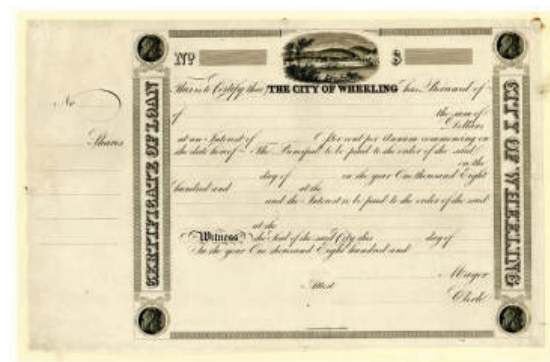 Nº $
No
Shares
CERTIFICATE OF LOAN
This is to Certify that THE CITY OF WHEELING has Borrowed of
of the sum of
Dollars
at an Interest of per cent per Annum commencing on
the date hereof The Principal to be paid to the order of the said
on the
day of in the year One thousand Eight
hundred and at the
and the Interest to be paid to the order of the said
at the
Witness the Seal of the said City this day of
In the year One thousand Eight hundred and
Mayor
Attest
Clerk
CITY OF WHEELING